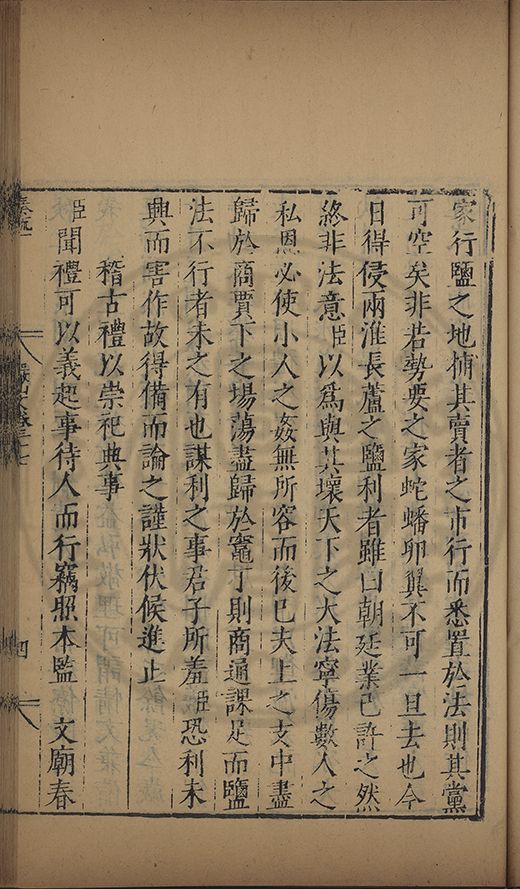 家行鹽之地捕其賣者之市行而悉置於法則其黨
可空矣非若勢要之家蛇蟠卵翼不可一旦去也今
日得侵兩淮長蘆之鹽利者雖曰朝廷業已許之然
終非法意臣以爲與其壞天下之大法寧傷數人之
私恩必使小人之姦無所容而後已夫上之支中盡
歸於商賈下之場蕩盡歸於竈丁則商通課足而鹽
法不行者未之有也謀利之事君子所羞臣恐利未
興而害作故得備而論之謹狀伏候進止
稽古禮以崇祀典事
臣聞禮可以義起事待人而行竊照本監 文廟春
四